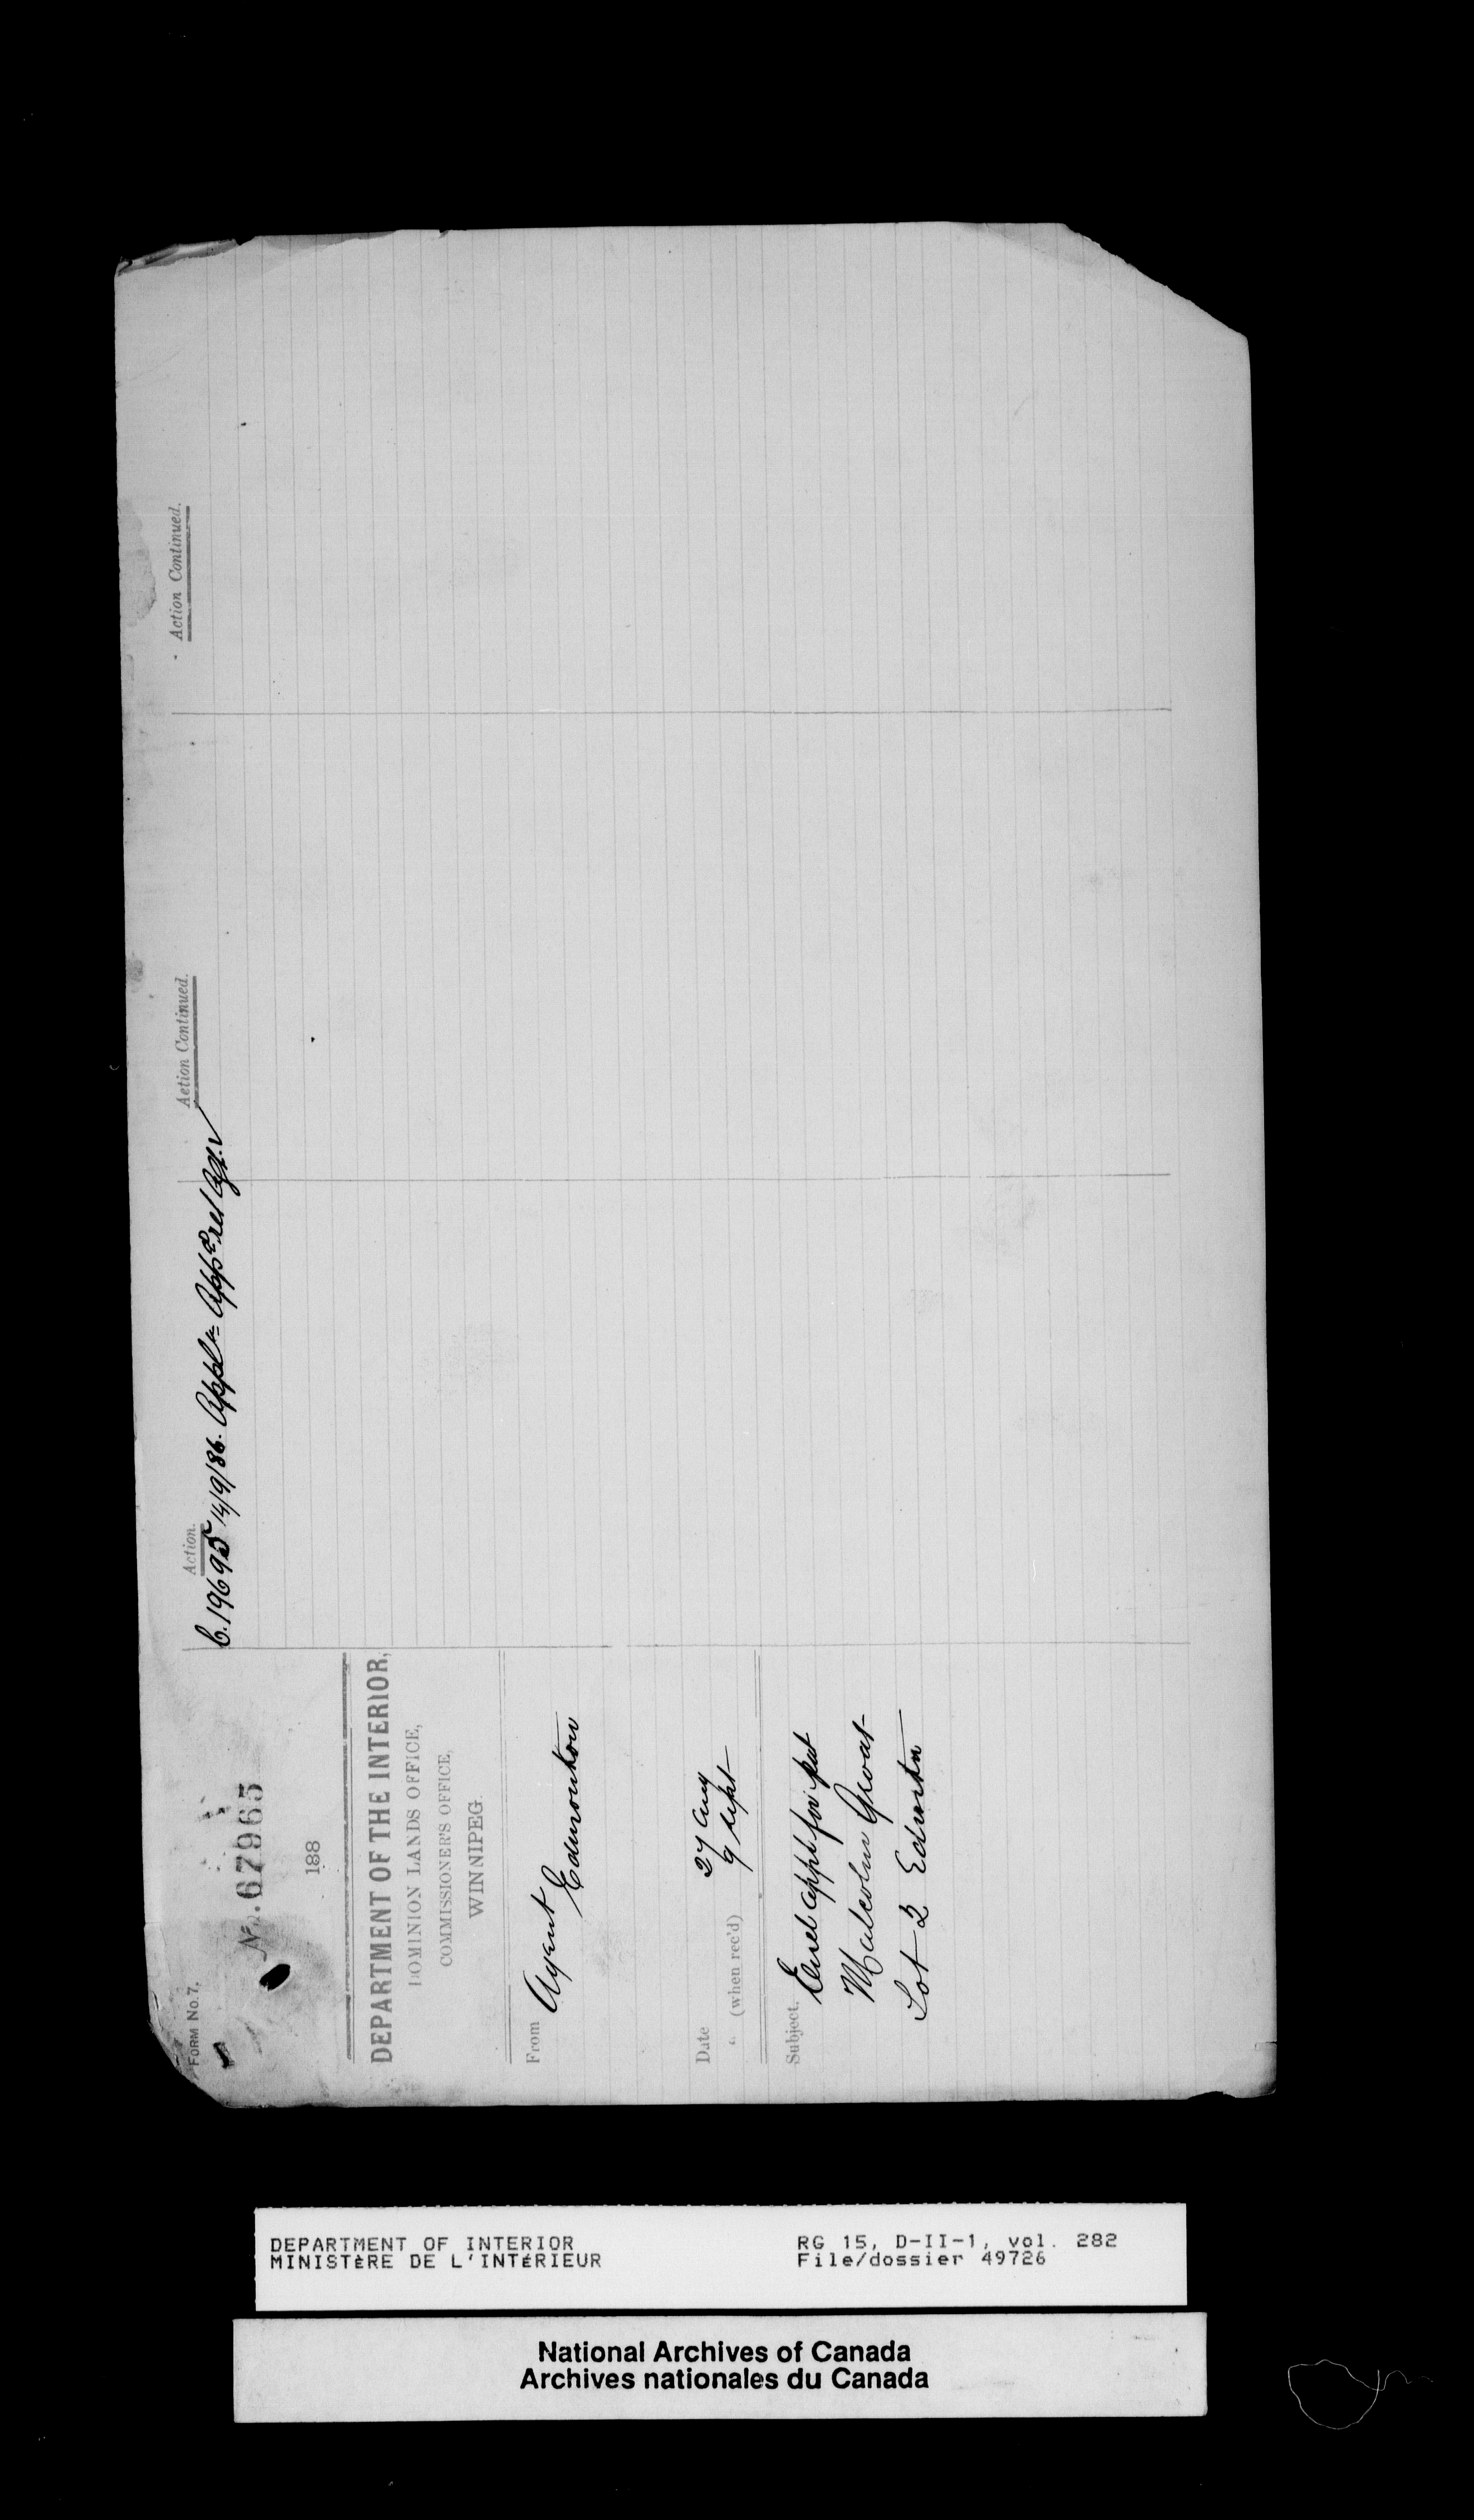 FORM No. 7.
No. 67965
188
DEPARTMENT OF THE INTERIOR,
DOMINION LANDS OFFICE,
COMMISSIONER'S OFFICE,
WINNIPEG.
From Agent
Edmonton
Date 27 Aug
" (when rec'd) 9 Sept
Subject. Encl appl for pat
Malcolm Groat
Lot 2 Edmtn
Action.
C. 19695 14/9/86. Appln App'd. Agt.
Action Continued.
Action Continued.
DEPARTMENT OF INTERIOR RG 15, D-II-1, vol. 282
MINISTÈRE DE L'INTÉRIEUR File/dossier 49726
National Archives of Canada
Archives nationales du Canada